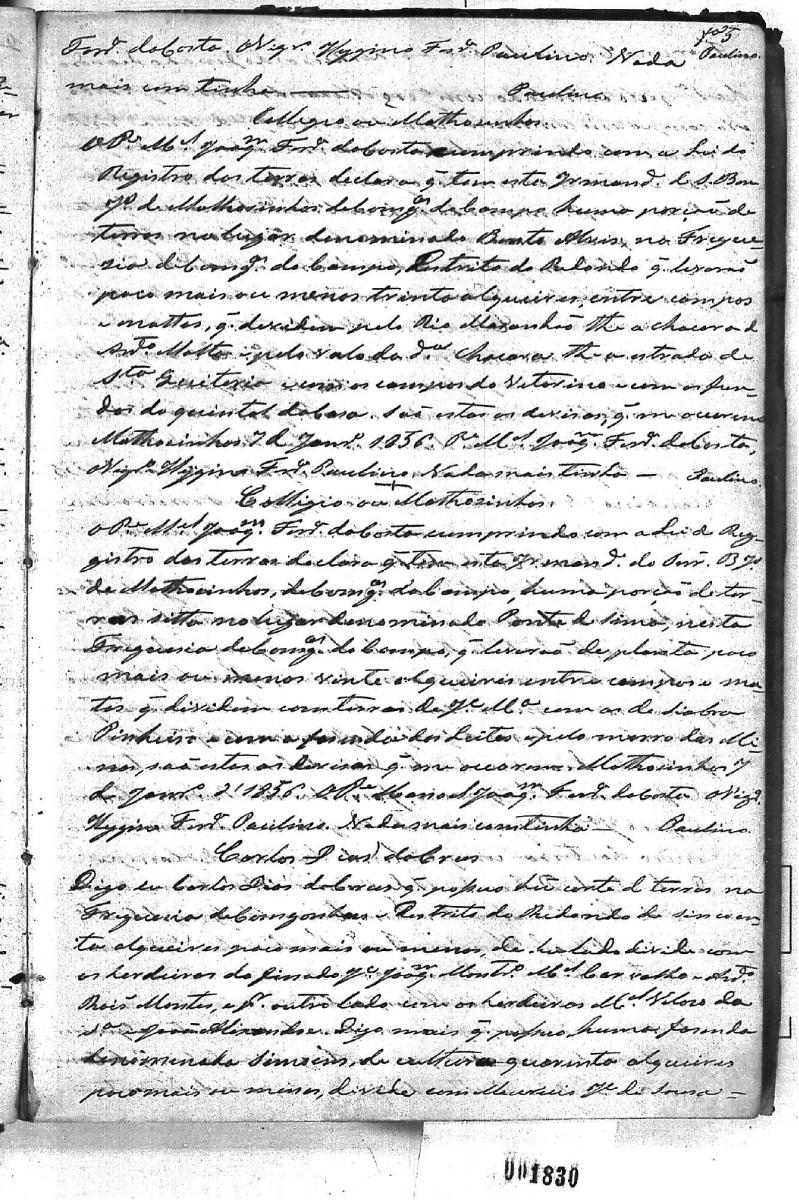 fo 5
Paulino
Ferr.ª da Costa. O Vigr.º Hygino Ferr.ª Paulino. Nada
mais continha — Paulino
Collegio ou Mathosinhos
O P.e M.el Joaq.m Ferr.ª da Costa cumprindo com a Lei do
Registro das terras declara q̃ tem esta Irmand.e de S. Bom
J.s de Mathosinhos de Cong.as do Campo huma porção de
terras no lugar denominado Bento Alves, na Fregue-
sia de Cong.as do Campo, Destrito do Redondo q̃ levarão
poco mais ou menos trinta alqueires, entre campos
e mattos, q̃ devidem pelo Rio Maranhão the a chacara d
Ant.º Motta e pelo valo da d.ª Chacara the a estrada de
S.ta Quiteria e com os campos do Vetorino e com os fun-
dos do quintal da Casa. São estas as devisas, q̃ me occorem
Mathocinhos 7 d Janr.º 1856. P.e M.el Joaq.m Ferr.ª da Costa,
O Vigr.º Hygino Ferr.ª Paulino. Nada mais tinha — Paulino
Collegio ou Mathosinhos
O P.e M.el Joaq.m Ferr.ª da Costa cumprindo com a Lei do Reg-
gistro das terras declara q̃ tem esta Irmand.e do Snr. B J.s
de Mathocinhos, de Cong.as do Campo, huma porção de ter-
ras sitta no lugar denominado Ponte de Sima, nesta
Freguesia de Cong.as do Campo, q̃ levarão de planta poco
mais ou menos vinte alqueires entre campos e ma-
tos q̃ dividem com terras de J.e M.ª com as de
Pinheiro e com a fasenda dos Leites e pelo morro das Mi-
nas, são estas as devisas q̃ me occorem. Mathosinhos 7
de Janr.º d' 1856. O P.e Manoel Joaq.m Ferr.ª da Costa O Vigr.º
Hygino Ferr.ª Paulino. Nada mais continha — Paulino
Carlos Dias
Digo eu Carlos Dias q̃ possuo hũ corte d terras na
Freguesia de Congonhas e Destrito do Redondo de sincoen-
ta alqueires poco mais ou menos, de hu lado divide com
os herdeiros do finado J.e Joaq.m Montr.º M.el Carvalho e Ant.º
Montes, e p.r outro lado com os herdeiros M.el Veloso da
S.ª e João Alexandre. Digo mais q̃ possuo, huma fasenda
denominada de cultura quarenta alqueires
poco mais ou menos, divide com J.e de Sousa —
001830